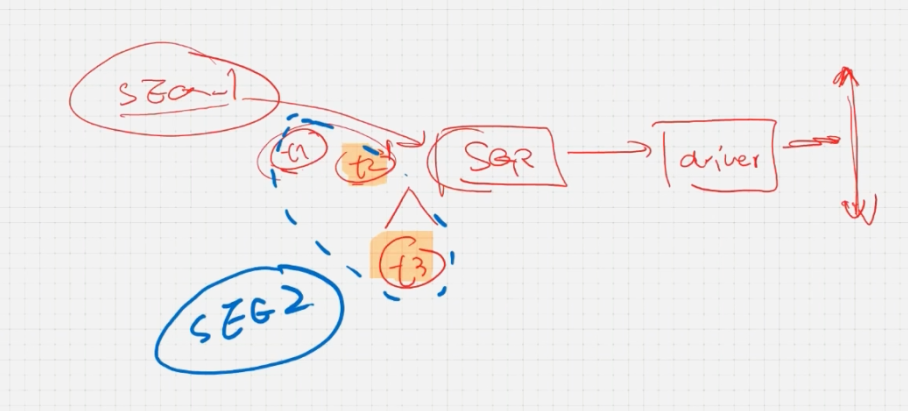 SEQ-1
t1
t2
SQR
driver
t3
SEG2